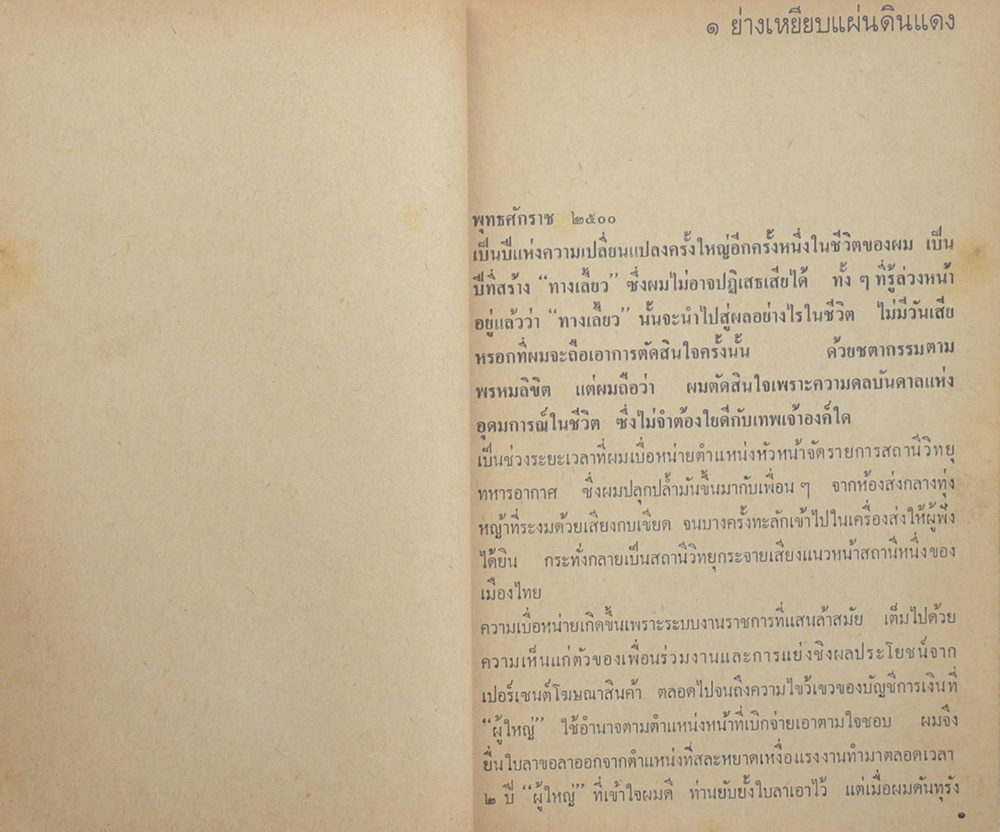 ๑ ย่างเหยียบแผ่นดินแดง
พุทธศักราช ๒๕๐๐
เป็นปีแห่งความเปลี่ยนแปลงครั้งใหญ่อีกครั้งหนึ่งในชีวิตของผม เป็น
ปีที่สร้าง “ทางเลี้ยว” ซึ่งผมไม่อาจปฏิเสธเสียได้ ทั้ง ๆ ที่รู้ล่วงหน้า
อยู่แล้วว่า “ทางเลี้ยว” นั้นจะนำไปสู่ผลอย่างไรในชีวิต ไม่มีวันเสีย
หรอกที่ผมจะถือเอาการตัดสินใจครั้งนั้น ด้วยชตากรรมตาม
พรหมลิขิต แต่ผมถือว่า ผมตัดสินใจเพราะความดลบันดาลแห่ง
อุดมการณ์ในชีวิต ซึ่งไม่จำต้องใยดีกับเทพเจ้าองค์ใด
เป็นช่วงระยะเวลาที่ผมเบื่อหน่ายตำแหน่งหัวหน้าจัดรายการสถานีวิทยุ
ทหารอากาศ ซึ่งผมปลุกปล้ำมันขึ้นมากับเพื่อน ๆ จากห้องส่งกลางทุ่ง
หญ้าที่ระงมด้วยเสียงกบเขียด จนบางครั้งทะลักเข้าไปในเครื่องส่งให้ผู้ฟัง
ได้ยิน กระทั่งกลายเป็นสถานีวิทยุกระจายเสียงแนวหน้าสถานีหนึ่งของ
เมืองไทย
ความเบื่อหน่ายเกิดขึ้นเพราะระบบงานราชการที่แสนล้าสมัย เต็มไปด้วย
ความเห็นแก่ตัวของเพื่อนร่วมงานและการแย่งชิงผลประโยชน์จาก
เปอร์เซนต์โฆษณาสินค้า ตลอดไปจนถึงความไขว้เขวของบัญชีการเงินที่
“ผู้ใหญ่” ใช้อำนาจตามตำแหน่งหน้าที่เบิกจ่ายเอาตามใจชอบ ผมจึง
ยื่นใบลาขอลาออกจากตำแหน่งที่สละหยาดเหงื่อแรงงานทำมาตลอดเวลา
๒ ปี “ผู้ใหญ่” ที่เข้าใจผมดี ท่านยับยั้งใบลาเอาไว้ แต่เมื่อผมดันทุรัง
๑